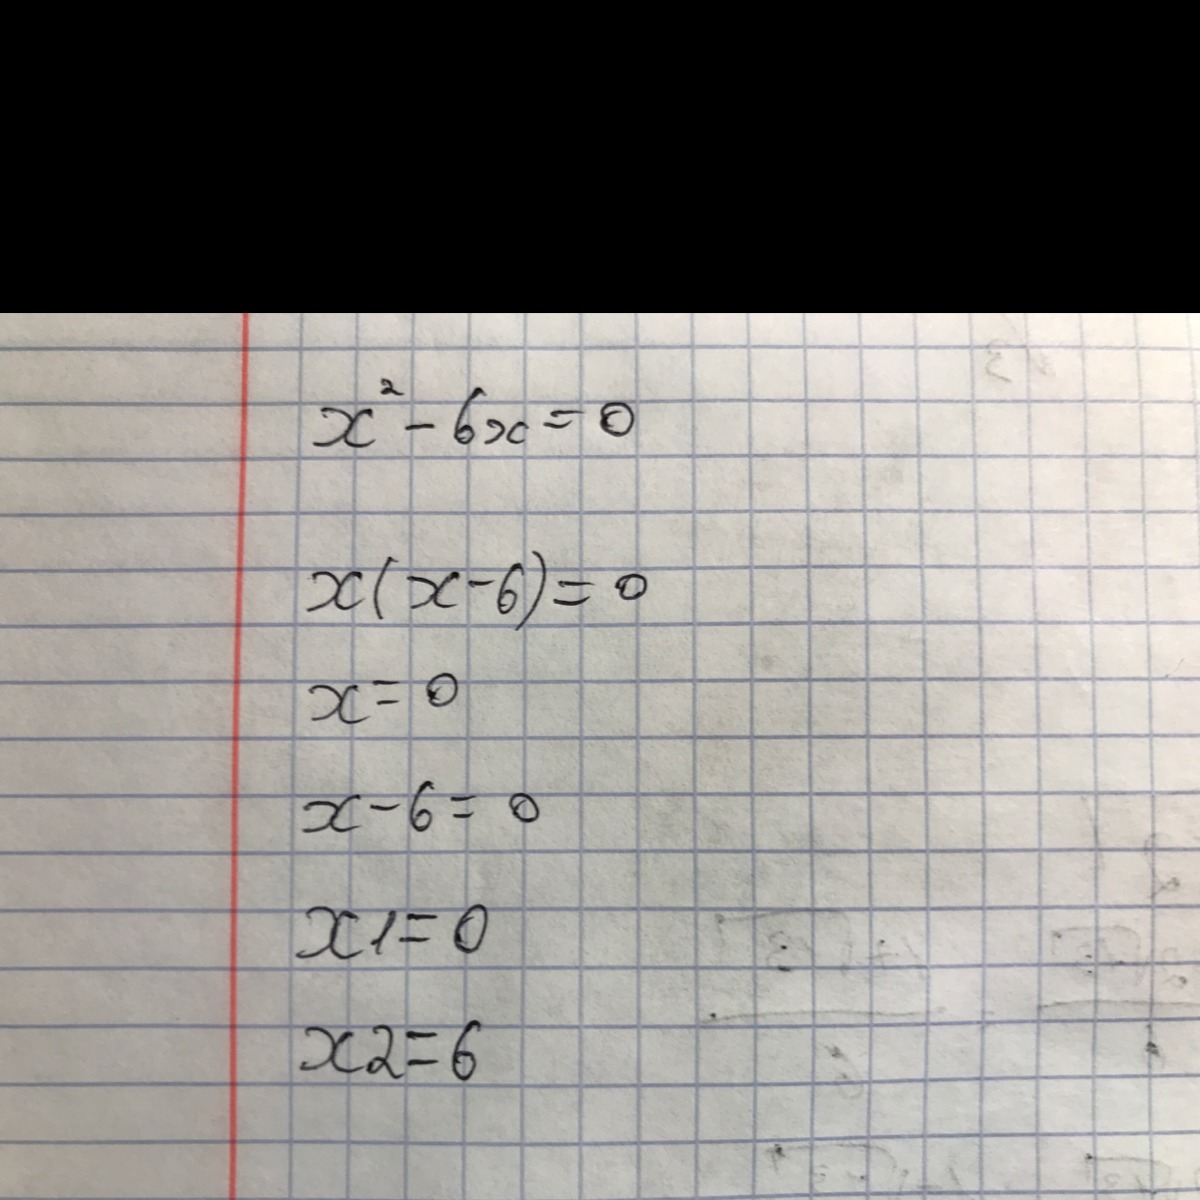 x² - 6x = 0
x(x-6) = 0
x = 0
x - 6 = 0
x1 = 0
x2 = 6